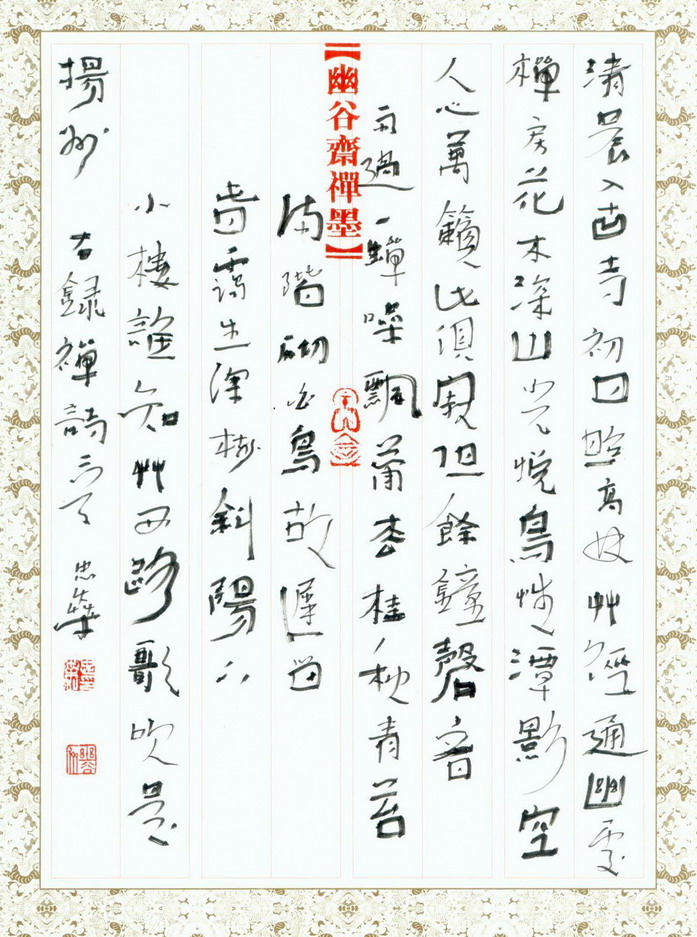 清晨入古寺初日照高林竹徑通幽處
禪房花木深山光悅鳥性潭影空
人心萬籟此俱寂但餘鐘磬音
雨過一蟬噪飄蕭松桂秋青苔
【幽谷齋禪墨】
滿階砌白鳥故遲留
暮靄生深樹斜陽下
小樓誰知竹西路歌吹是
揚州 右録禪詩 忠